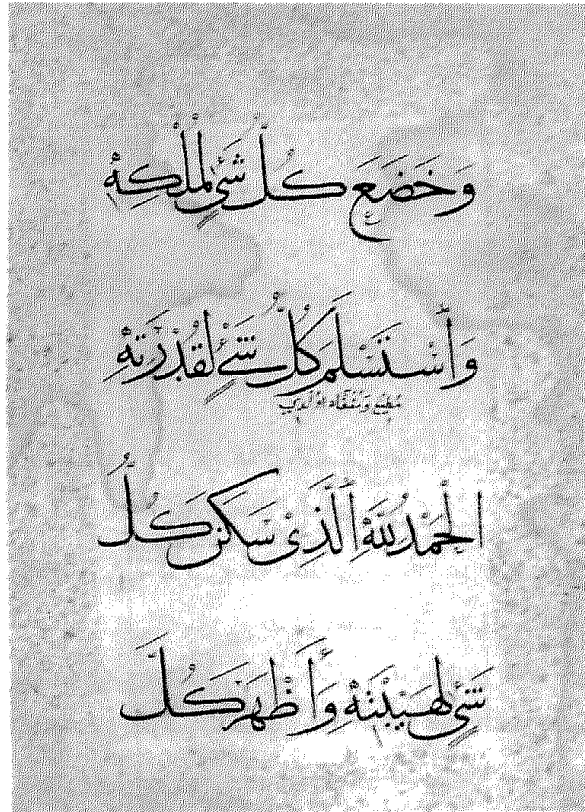 وَخَضَعَ كُلُّ شَيْءٍ لِمُلْكِهِ
وَاَسْتَسْلَمَ كُلُّ شَيْءٍ لِقُدْرَتِهِ
مطيع ومنقاد اولدي
الْحَمْدُ لِلّٰهِ الَّذِي سَكَنَ كُلُّ
شَيْءٍ لِهَيْبَتِهِ وَأَظْهَرَ كُلَّ